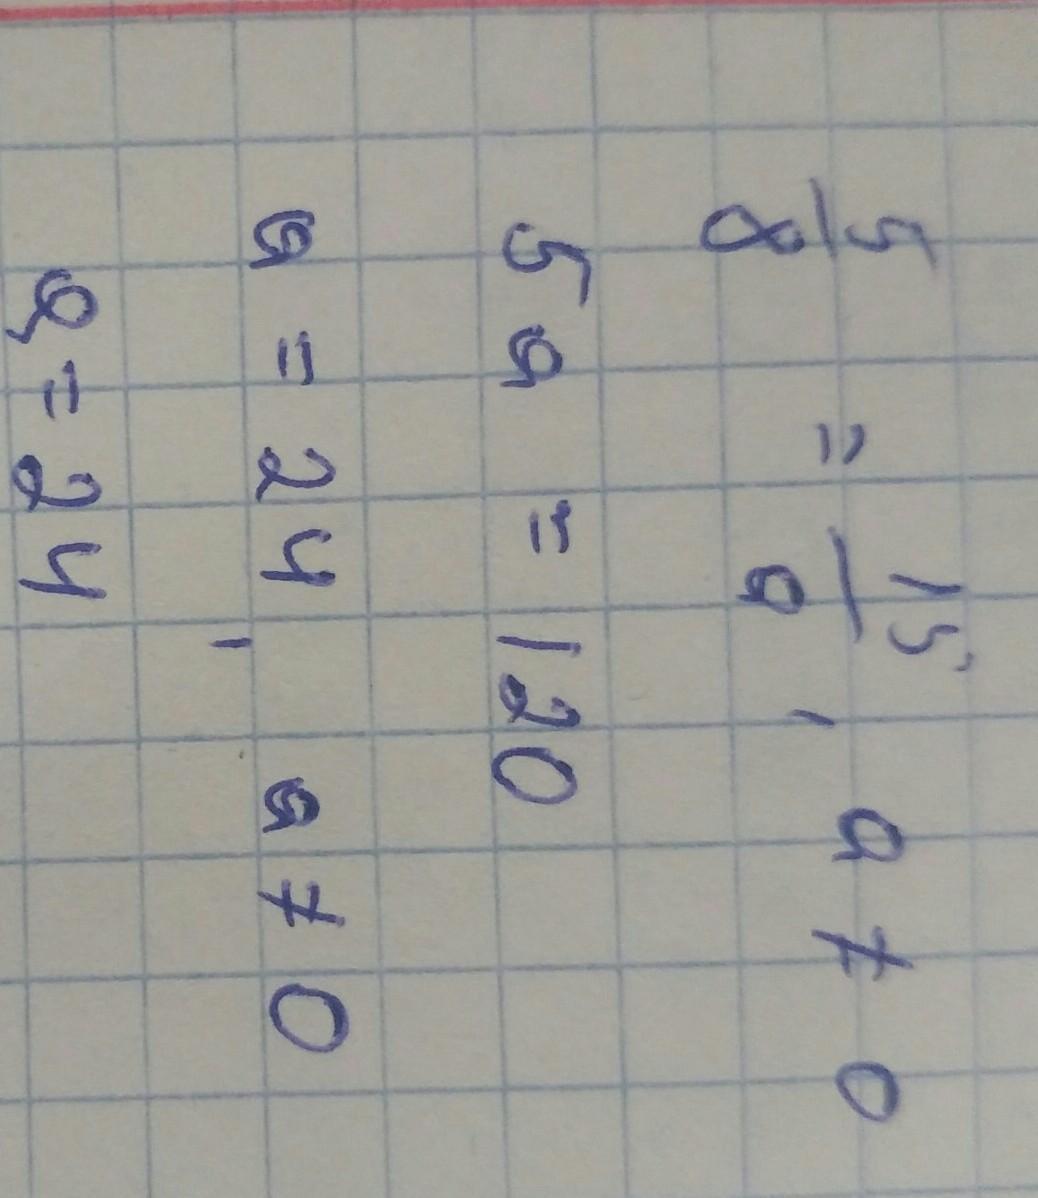 5/8 = 15/a, a ≠ 0
5a = 120
a = 24, a ≠ 0
a = 24